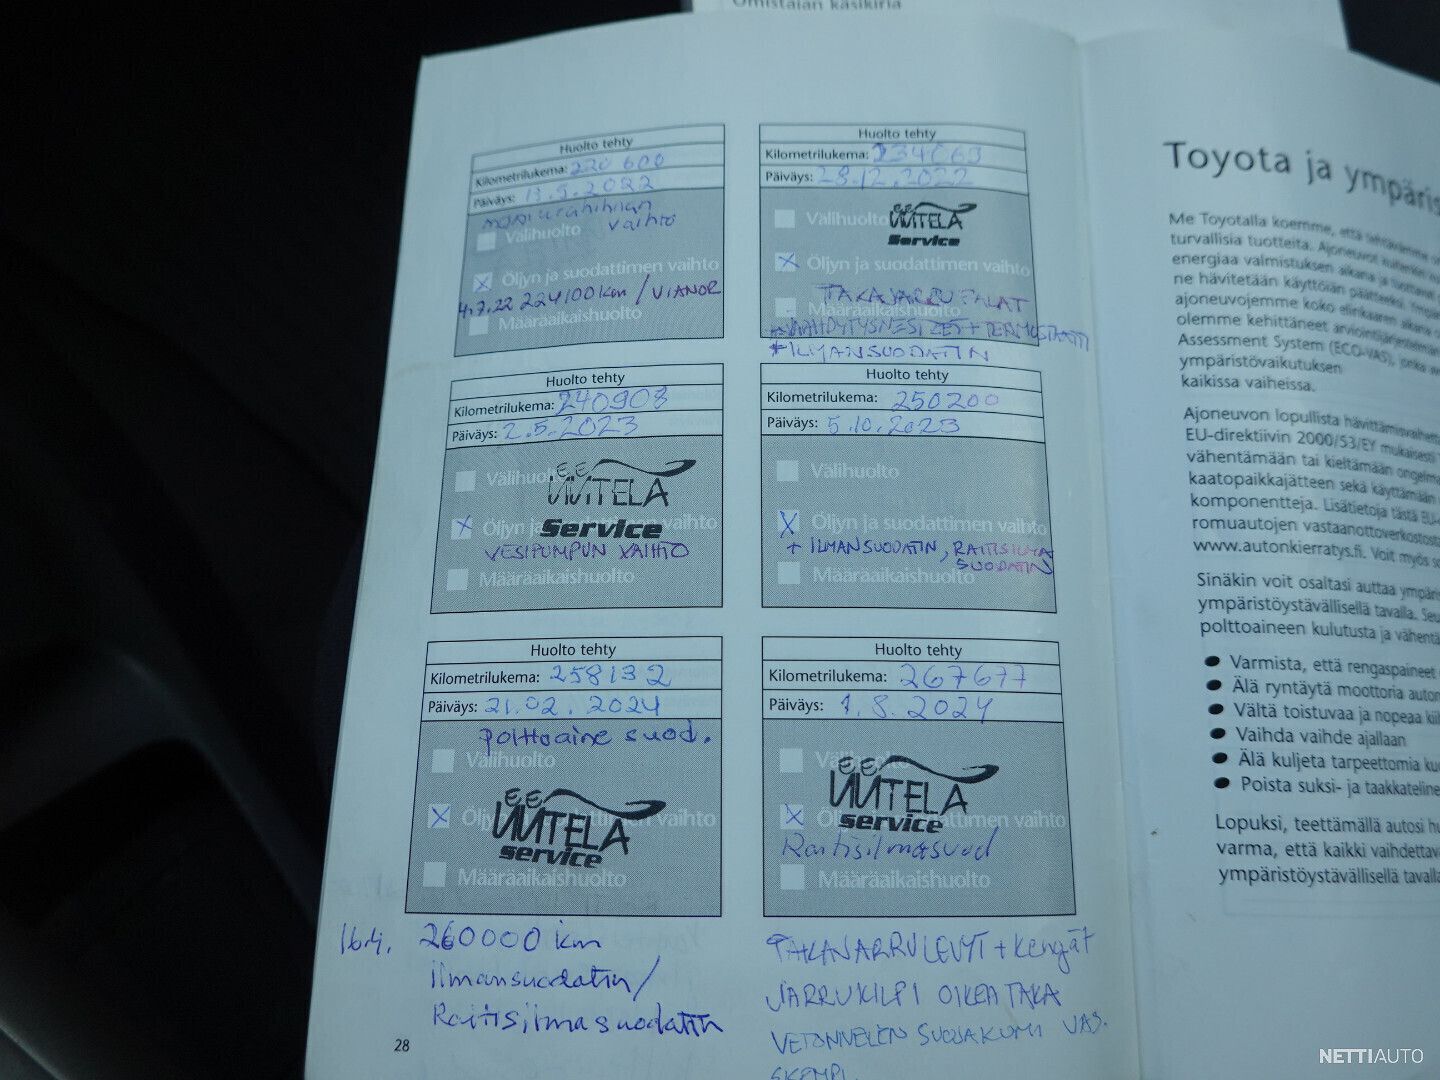 Omistajan käsikirja
Huolto tehty
Kilometrilukema: 220 600
Päiväys: 13.5.2022
vaihto
Välihuolto
Öljyn ja suodattimen vaihto
4.7.22 224100km / VIANOR
Määräaikaishuolto
Huolto tehty
Kilometrilukema: 234063
Päiväys: 28.12.2022
Välihuolto
UUTELA
Service
Öljyn ja suodattimen vaihto
TAKAJARRUPALAT
+ JÄÄHDYTYSNESTEET + TERMOSTAATTI
+ ILMANSUODATIN
Huolto tehty
Kilometrilukema: 240908
Päiväys: 2.5.2023
Välihuolto
UUTELA
Service
Öljyn ja suodattimen vaihto
VESIPUMPUN VAIHTO
Määräaikaishuolto
Huolto tehty
Kilometrilukema: 250200
Päiväys: 5.10.2023
Välihuolto
Öljyn ja suodattimen vaihto
+ ILMANSUODATIN, RAITISILMA
SUODATIN
Määräaikaishuolto
Huolto tehty
Kilometrilukema: 258132
Päiväys: 21.02.2024
polttoaine suod.
Välihuolto
UUTELA
service
Öljyn ja suodattimen vaihto
Määräaikaishuolto
16.4. 260000 km
ilmansuodatin/
Raitisilmasuodatin
28
Huolto tehty
Kilometrilukema: 267677
Päiväys: 1.8.2024
Välihuolto
UUTELA
service
Öljyn ja suodattimen vaihto
Raitisilmasuod
Määräaikaishuolto
TAKAJARRULEVYT + kengät
JARRUKILPI OIKEA TAKA
VETONIVELEN SUOJAKUMI VAS.
Toyota ja ympäris
Me Toyotalla koemme, että tehtävämme on
turvallisia tuotteita. Ajoneuvot kuitenkin
energiaa valmistuksen aikana ja tuottavat
ne hävitetään käyttöiän päätteeksi.
ajoneuvojemme koko elinkaaren aikana
olemme kehittäneet arviointijärjestelmän
Assessment System (ECO-VAS), jonka
ympäristövaikutuksen
kaikissa vaiheissa.
Ajoneuvon lopullista hävittämisvaihetta
EU-direktiivin 2000/53/EY mukaisesti
vähentämään tai kieltämään ongelma
kaatopaikkajätteen sekä käyttämään
komponentteja. Lisätietoja tästä EU-
romuautojen vastaanottoverkostosta
www.autonkierratys.fi. Voit myös
Sinäkin voit osaltasi auttaa ympär
ympäristöystävällisellä tavalla. Seu
polttoaineen kulutusta ja vähentä
● Varmista, että rengaspaineet
● Älä ryntäytä moottoria auton
● Vältä toistuvaa ja nopeaa kii
● Vaihda vaihde ajallaan
● Älä kuljeta tarpeettomia ku
● Poista suksi- ja taakkateline
Lopuksi, teettämällä autosi hu
varma, että kaikki vaihdettav
ympäristöystävällisellä tavalla
NETTIAUTO